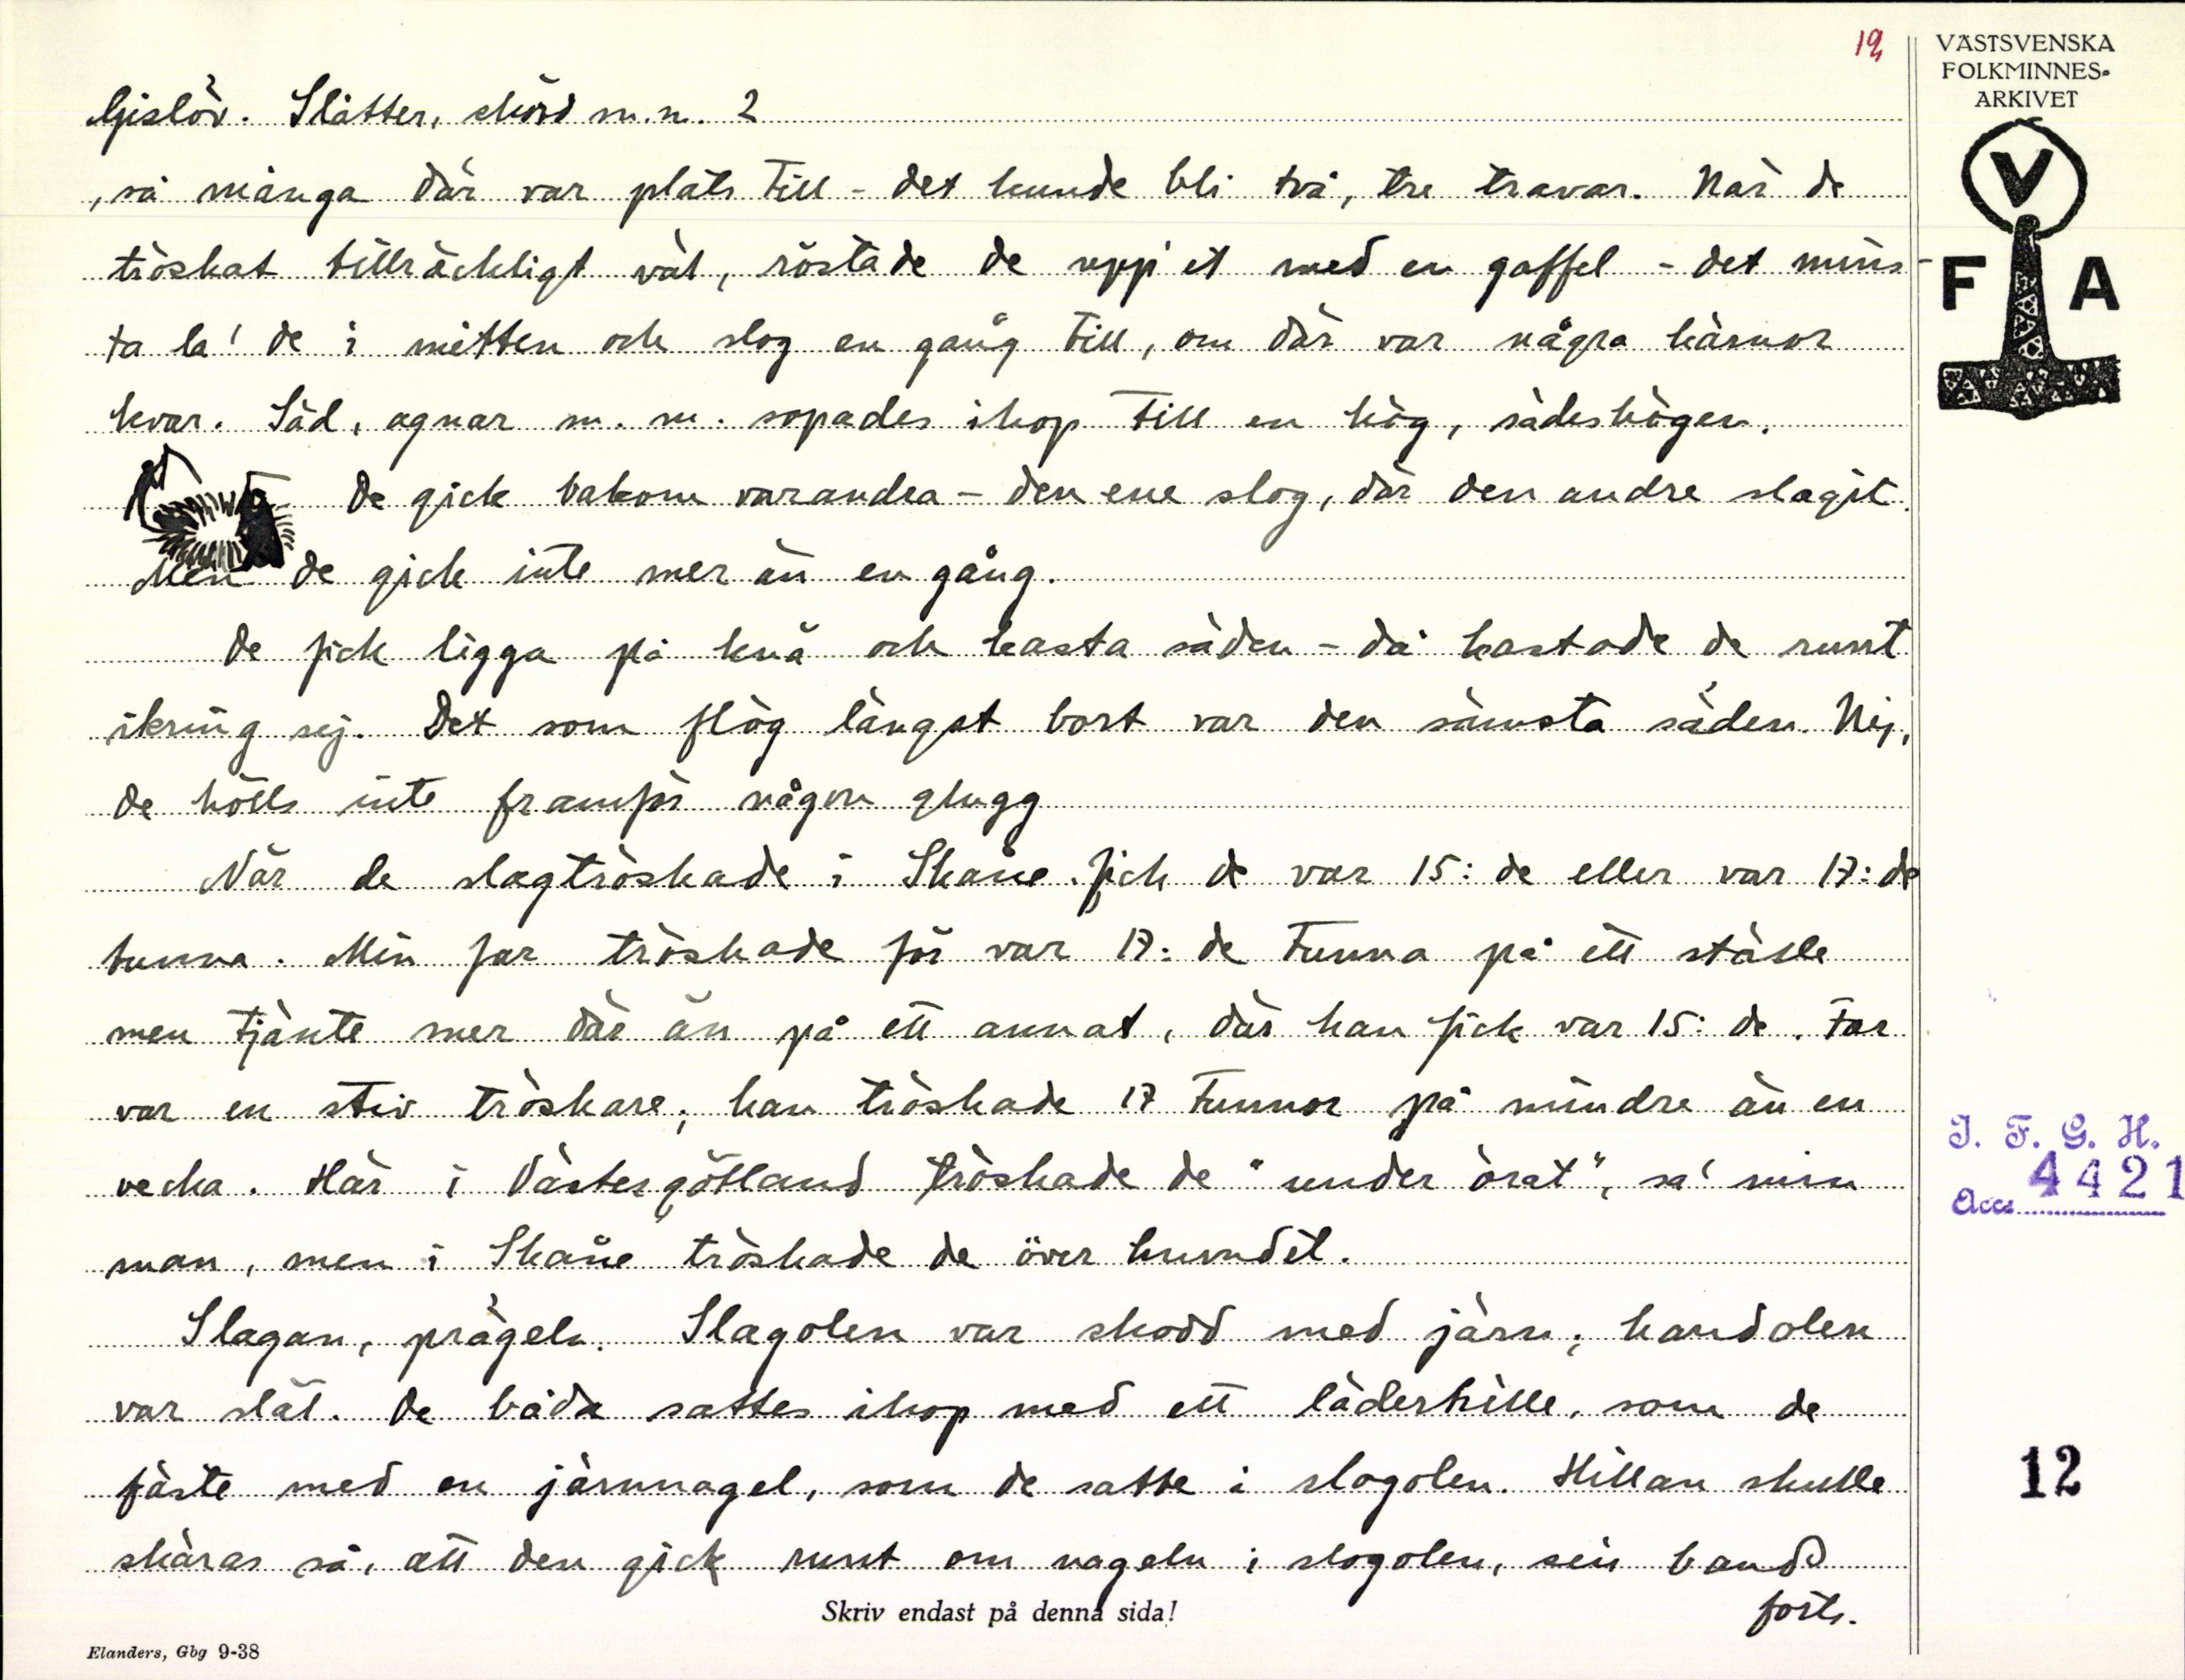 12
VÄSTSVENSKA
FOLKMINNES-
ARKIVET
V
F A
Gislöv. Slåtter, skörd m.m. 2
, så många där var plats till - det kunde bli två, tre travar. När de
tröskat tillräckligt väl, röstade de upp'et med en gaffel - det mins-
ta la' de i mitten och slog en gång till, om där var några kärnor
kvar. Säd, agnar m.m. sopades ihop till en hög, sädeshögen.
De gick bakom varandra - den ene slog, där den andre slagit.
Men de gick inte mer än en gång.
De fick ligga på knä och kasta säden - då kastade de runt
ikring sej. Det som flög längst bort var den sämsta säden. Nej,
de hölls inte framför någon glugg
När de slagtröskade i Skåne fick de var 15:de eller var 17:de
tunna. Min far tröskade för var 17:de tunna på ett ställe
men tjänte mer där än på ett annat, där han fick var 15:de. Far
var en styv tröskare; han tröskade 17 tunnor på mindre än en
vecka. Här i Västergötland tröskade de "under örat", sa' min
man, men i Skåne tröskade de över huvudet.
Slagan, prägeln. Slagolen var skodd med järn; handolen
var slät. De båda sattes ihop med ett läderhille, som de
fäste med en järnnagel, som de satte i slogolen. Hillan skulle
skäras så, att den gick runt om nageln i slogolen, sen band
forts.
I. F. G. H.
Acc. 4421
12
Skriv endast på denna sida!
Elanders, Gbg 9-38